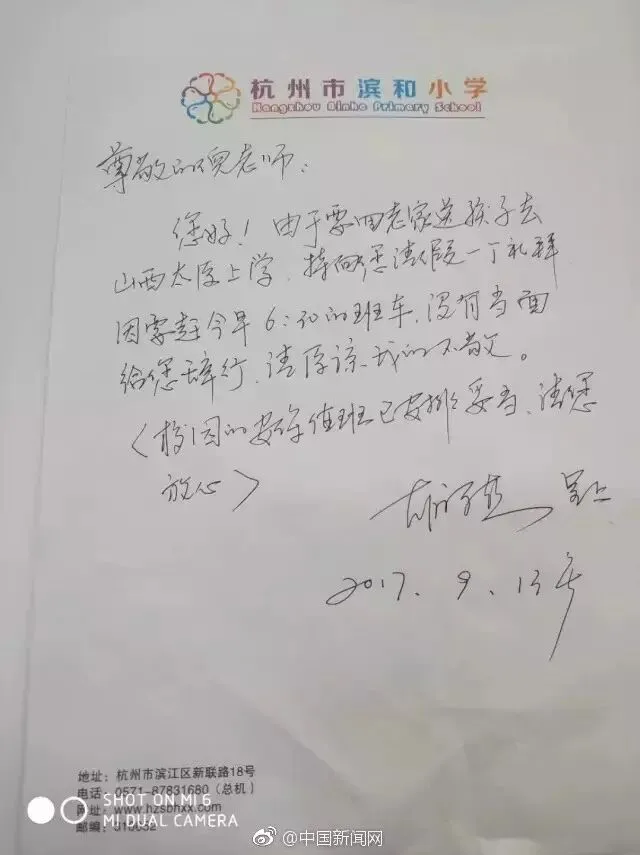 杭州市滨和小学
Hangzhou Binhe Primary School
尊敬的倪老师：
您好！由于要回老家送孩子去
山西太原上学、特向您请假一个礼拜
因需赶今早6:50的班车、没有当面
给您辞行、请原谅我的不敬。
（校园的安保值班已安排妥当、请您
放心）
呈上
2017.9.13
地址：杭州市滨江区新联路18号
电话：0571-87831680（总机）
网址：www.hzsbhxx.com
邮编：310052
SHOT ON MI 6
MI DUAL CAMERA
@中国新闻网